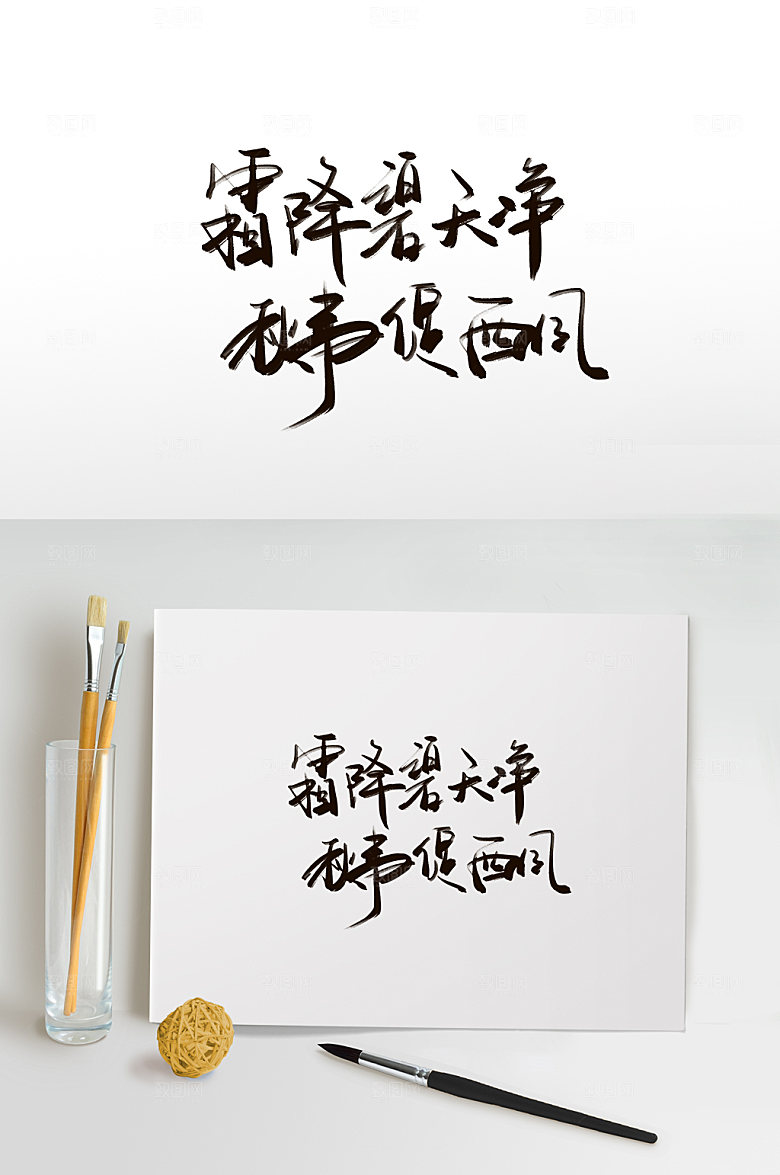 霜降碧天净
秋事促西风
霜降碧天净
秋事促西风